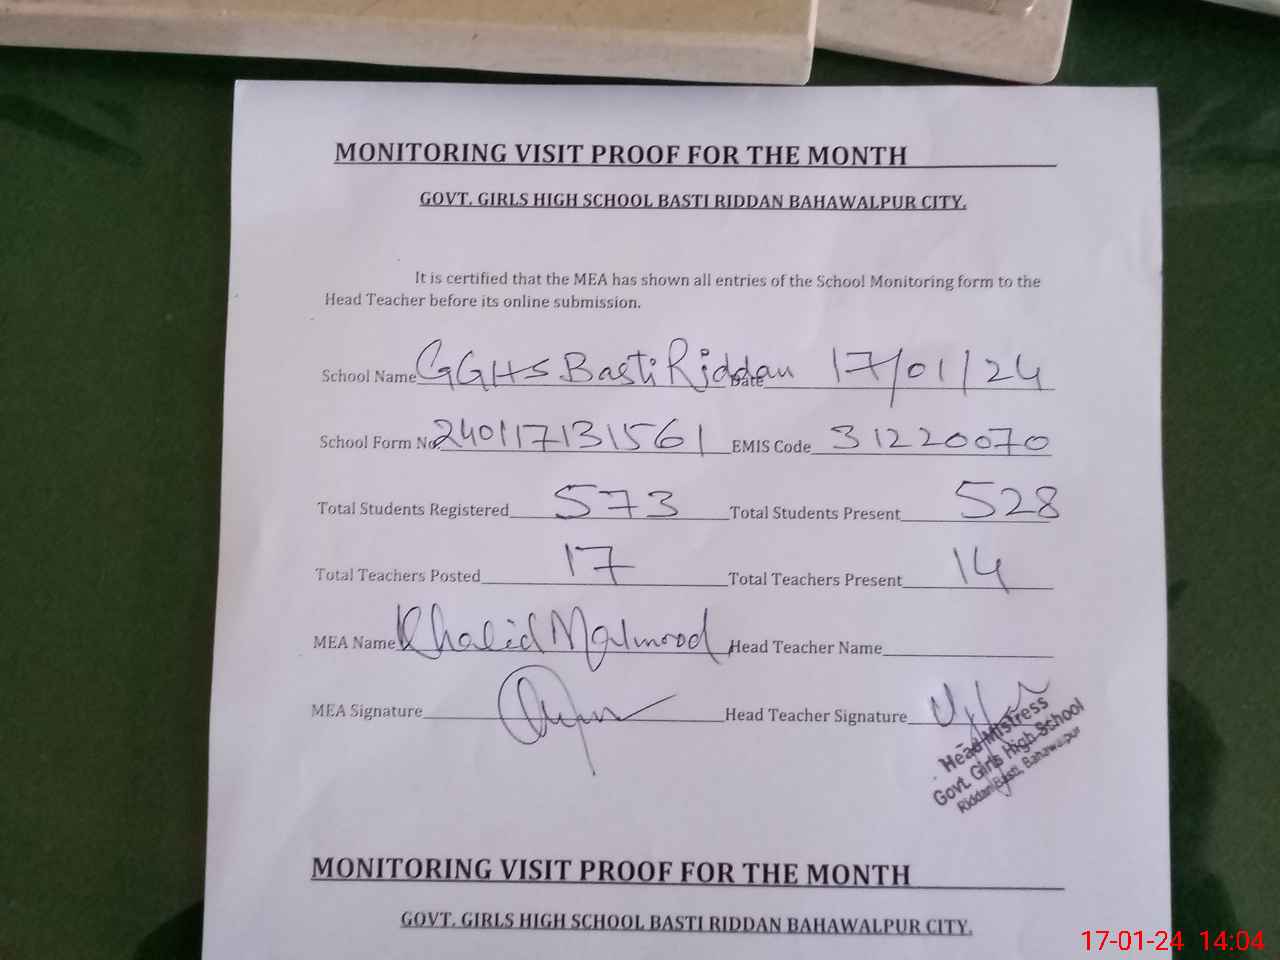 MONITORING VISIT PROOF FOR THE MONTH
GOVT. GIRLS HIGH SCHOOL BASTI RIDDAN BAHAWALPUR CITY.
It is certified that the MEA has shown all entries of the School Monitoring form to the
Head Teacher before its online submission.
School Name GGHS Basti Riddan Date 17/01/24
School Form No. 240117131561 EMIS Code 31220070
Total Students Registered 573 Total Students Present 528
Total Teachers Posted 17 Total Teachers Present 14
MEA Name Khalid Mahmood Head Teacher Name
MEA Signature Head Teacher Signature
Head Mistress
Govt. Girls High School
Riddan Basti, Bahawalpur
MONITORING VISIT PROOF FOR THE MONTH
GOVT. GIRLS HIGH SCHOOL BASTI RIDDAN BAHAWALPUR CITY.
17-01-24 14:04